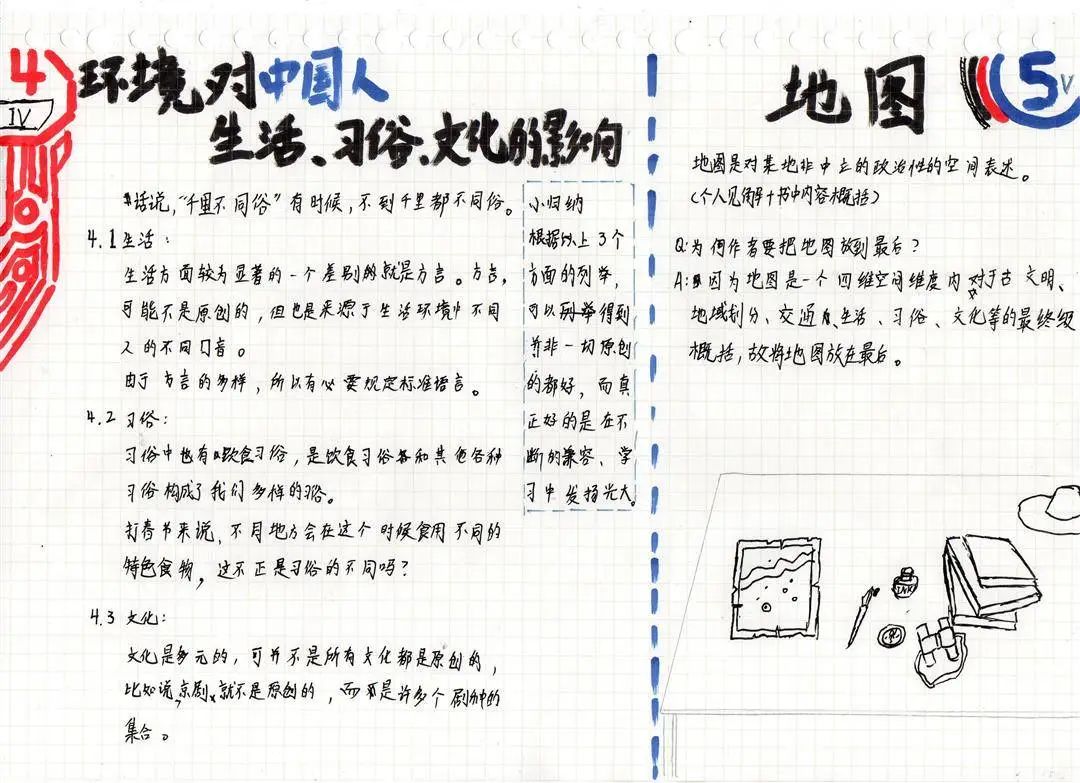 4
IV
环境对中国人
生活、习俗、文化的影响
话说，“千里不同俗”有时候，不到千里都不同俗。
4.1 生活：
生活方面较为显著的一个差别就是方言。方言，
可能不是原创的，但也是来源于生活环境中不同
人的不同口音。
由于方言的多样，所以有必要规定标准语言。
4.2 习俗：
习俗中也有饮食习俗，是饮食习俗和其他各种
习俗构成了我们多样的习俗。
打春节来说，不同地方会在这个时候食用不同的
特色食物，这不正是习俗的不同吗？
4.3 文化：
文化是多元的，可并不是所有文化都是原创的，
比如说，京剧就不是原创的，而是许多个剧种的
集合。
小归纳
根据以上3个
方面的列举，
可以得到
并非一切原创
的都好，而真
正好的是在不
断的兼容、学
习中发扬光大。
地图
5
V
地图是对某地非中立的政治性的空间表述。
（个人见解+书中内容概括）
Q:为何作者要把地图放到最后？
A:因为地图是一个四维空间维度内对于古文明、
地域划分、交通、生活、习俗、文化等的最终级
概括，故将地图放在最后。
INK